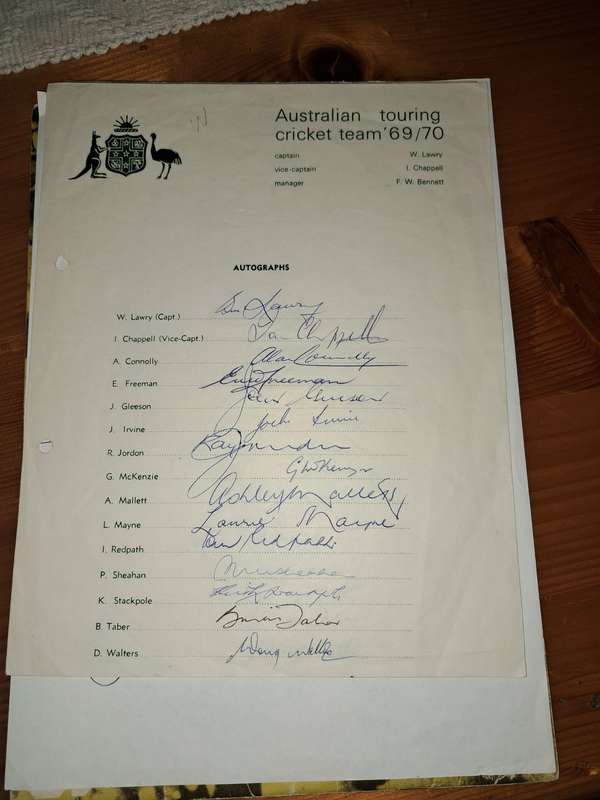 Australian touring
cricket team '69/70
captain W. Lawry
vice-captain I. Chappell
manager F. W. Bennett
AUTOGRAPHS
W. Lawry (Capt.) Bill Lawry
I. Chappell (Vice-Capt.) Ian Chappell
A. Connolly Alan Connolly
E. Freeman Eric Freeman
J. Gleeson
J. Irvine Jock Irvine
R. Jordon Ray Jordon
G. McKenzie G McKenzie
A. Mallett Ashley Mallett
L. Mayne Laurie Mayne
I. Redpath Ian Redpath
P. Sheahan
K. Stackpole Keith Stackpole
B. Taber Brian Taber
D. Walters Doug Walters